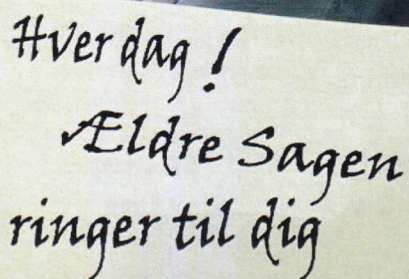 Hver dag!
Ældre Sagen
ringer til dig